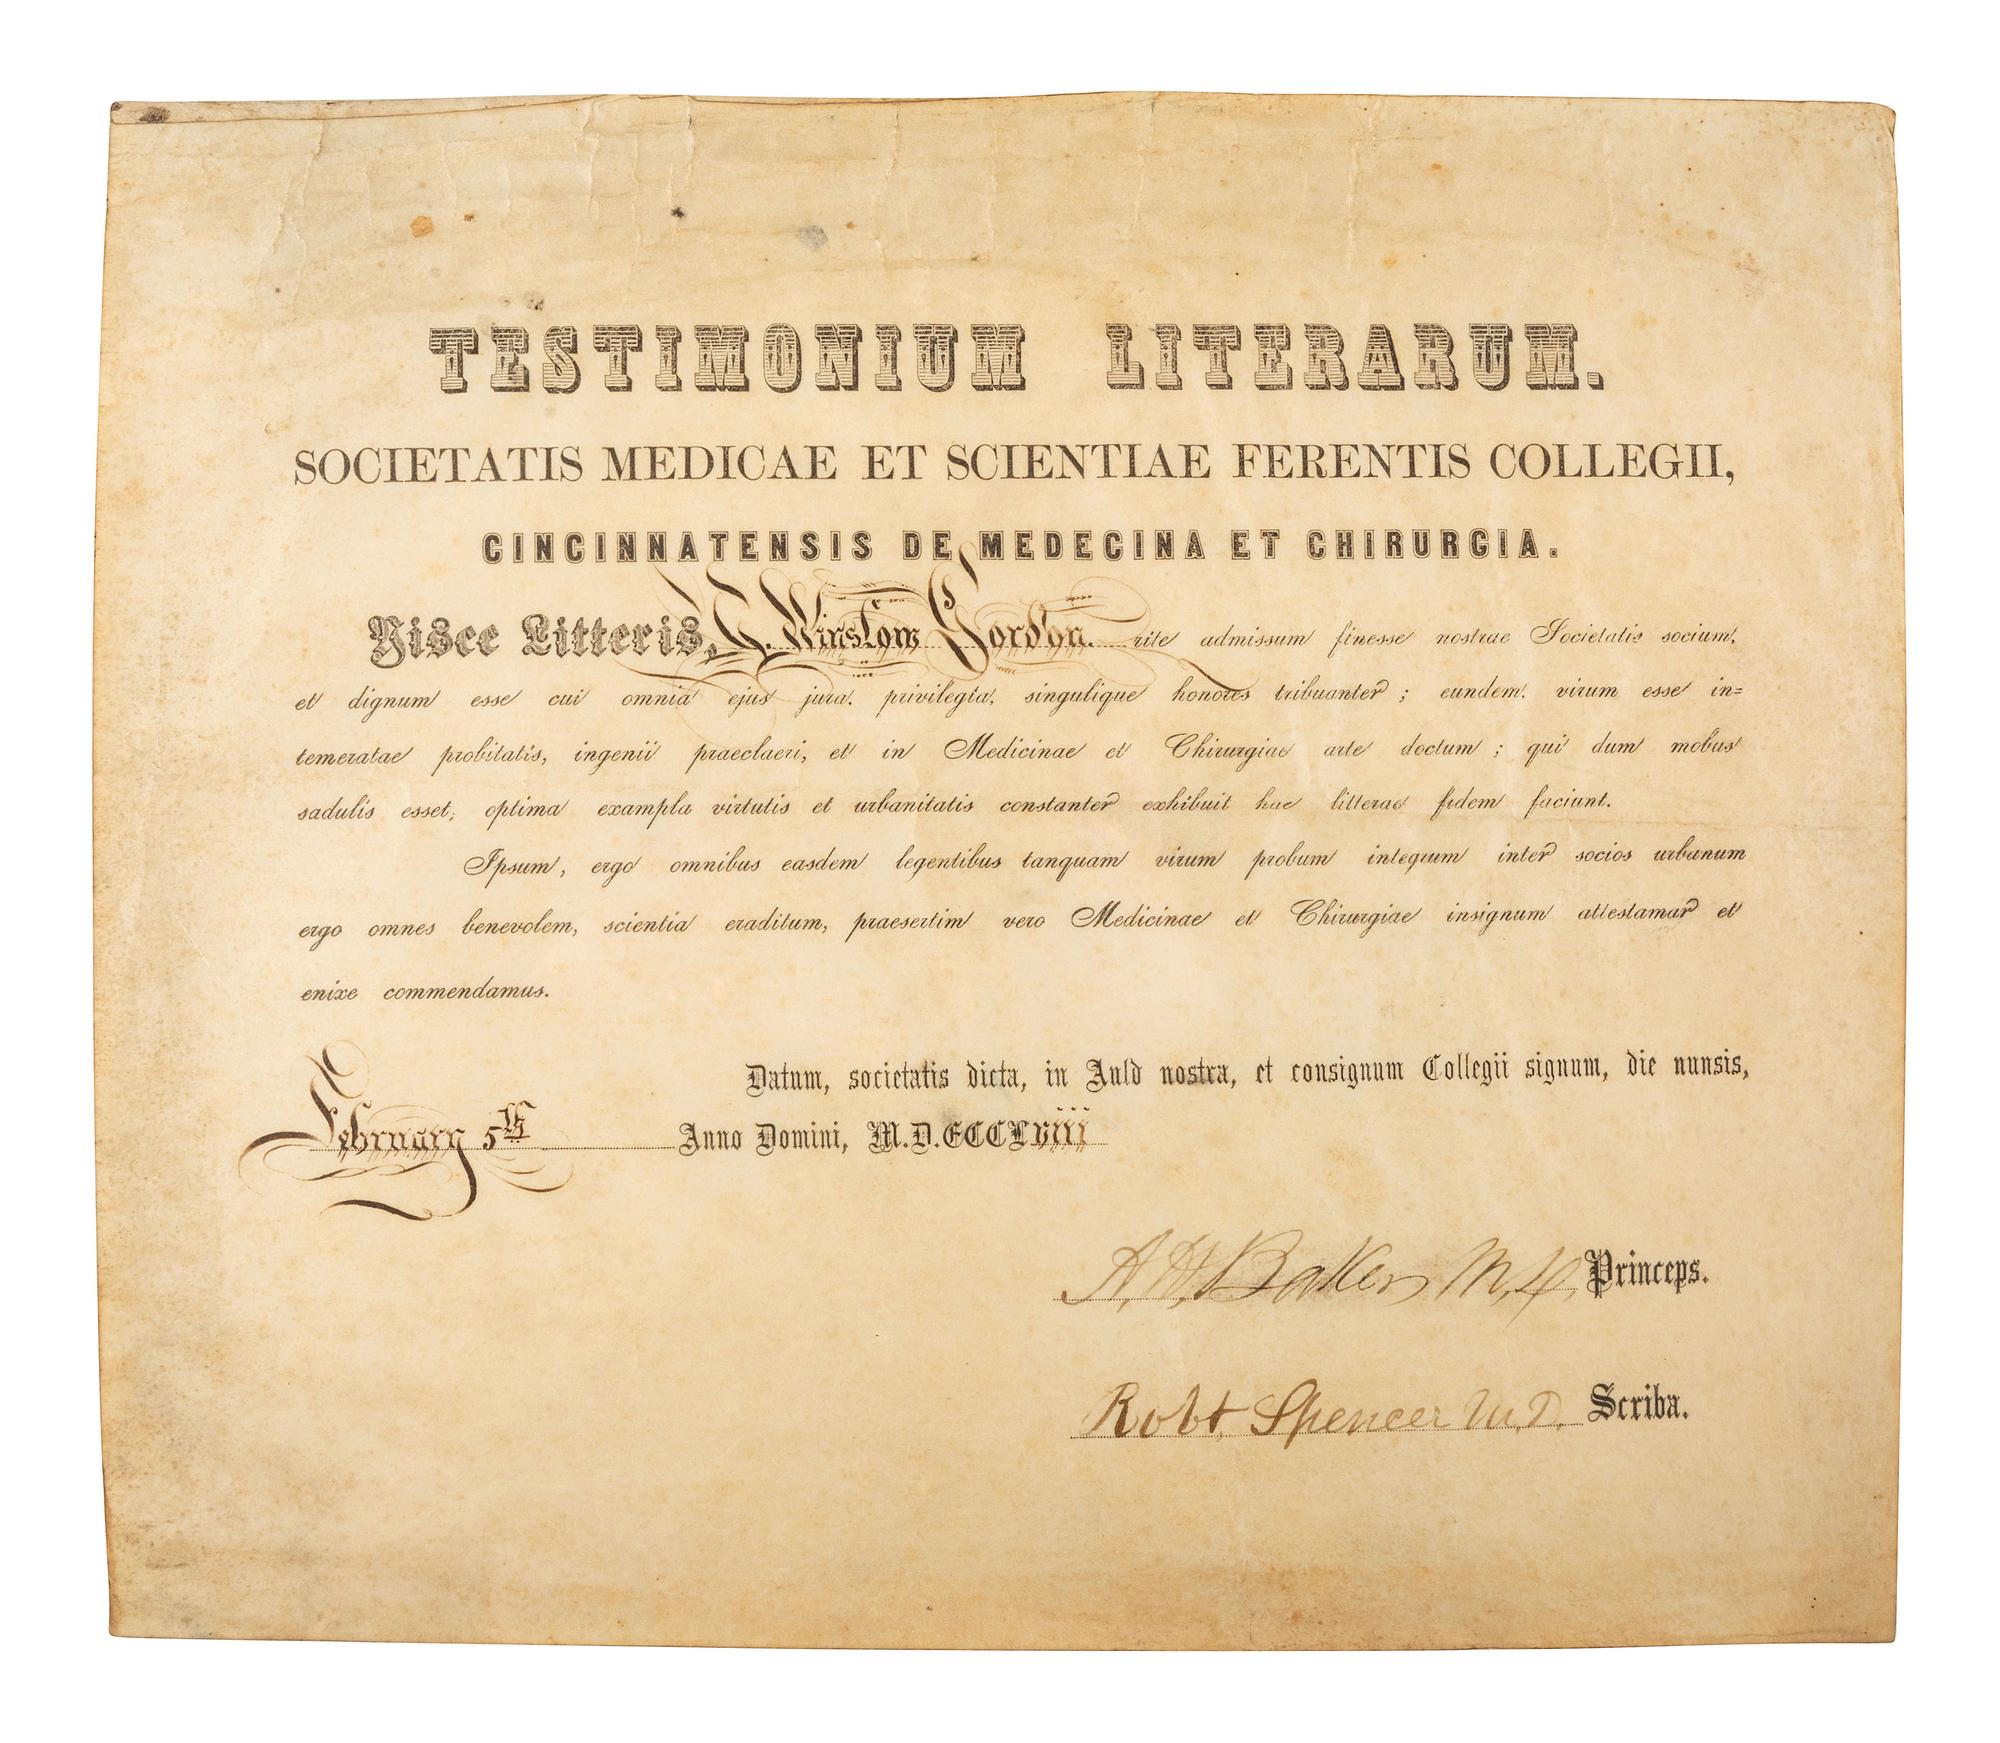 TESTIMONIUM LITERARUM.
SOCIETATIS MEDICAE ET SCIENTIAE FERENTIS COLLEGII,
CINCINNATENSIS DE MEDECINA ET CHIRURGIA.
Hisce Litteris, C. Winslow Gordon. rite admissum finesse nostrae Societatis socium,
et dignum esse cui omnia ejus jura, privilegia, singulique honores tribuanter; eundem, virum esse in=
temeratae probitatis, ingenii praeclaeri, et in Medicinae et Chirurgiae arte doctum; qui dum mobus
sadulis esset, optima exampla virtutis et urbanitatis constanter exhibuit hae litterae fidem faciunt.
Ipsum, ergo omnibus easdem legentibus tanquam virum probum integrum inter socios urbanum
ergo omnes benevolem, scientia eraditum, praesertim vero Medicinae et Chirurgiae insignum attestamar et
enixe commendamus.
Datum, societatis dicta, in Auld nostra, et consignum Collegii signum, die nunsis,
February 5th Anno Domini, M.D.CCCLviii
A. H. Baker M.D. Princeps.
Robt. Spencer M.D. Scriba.